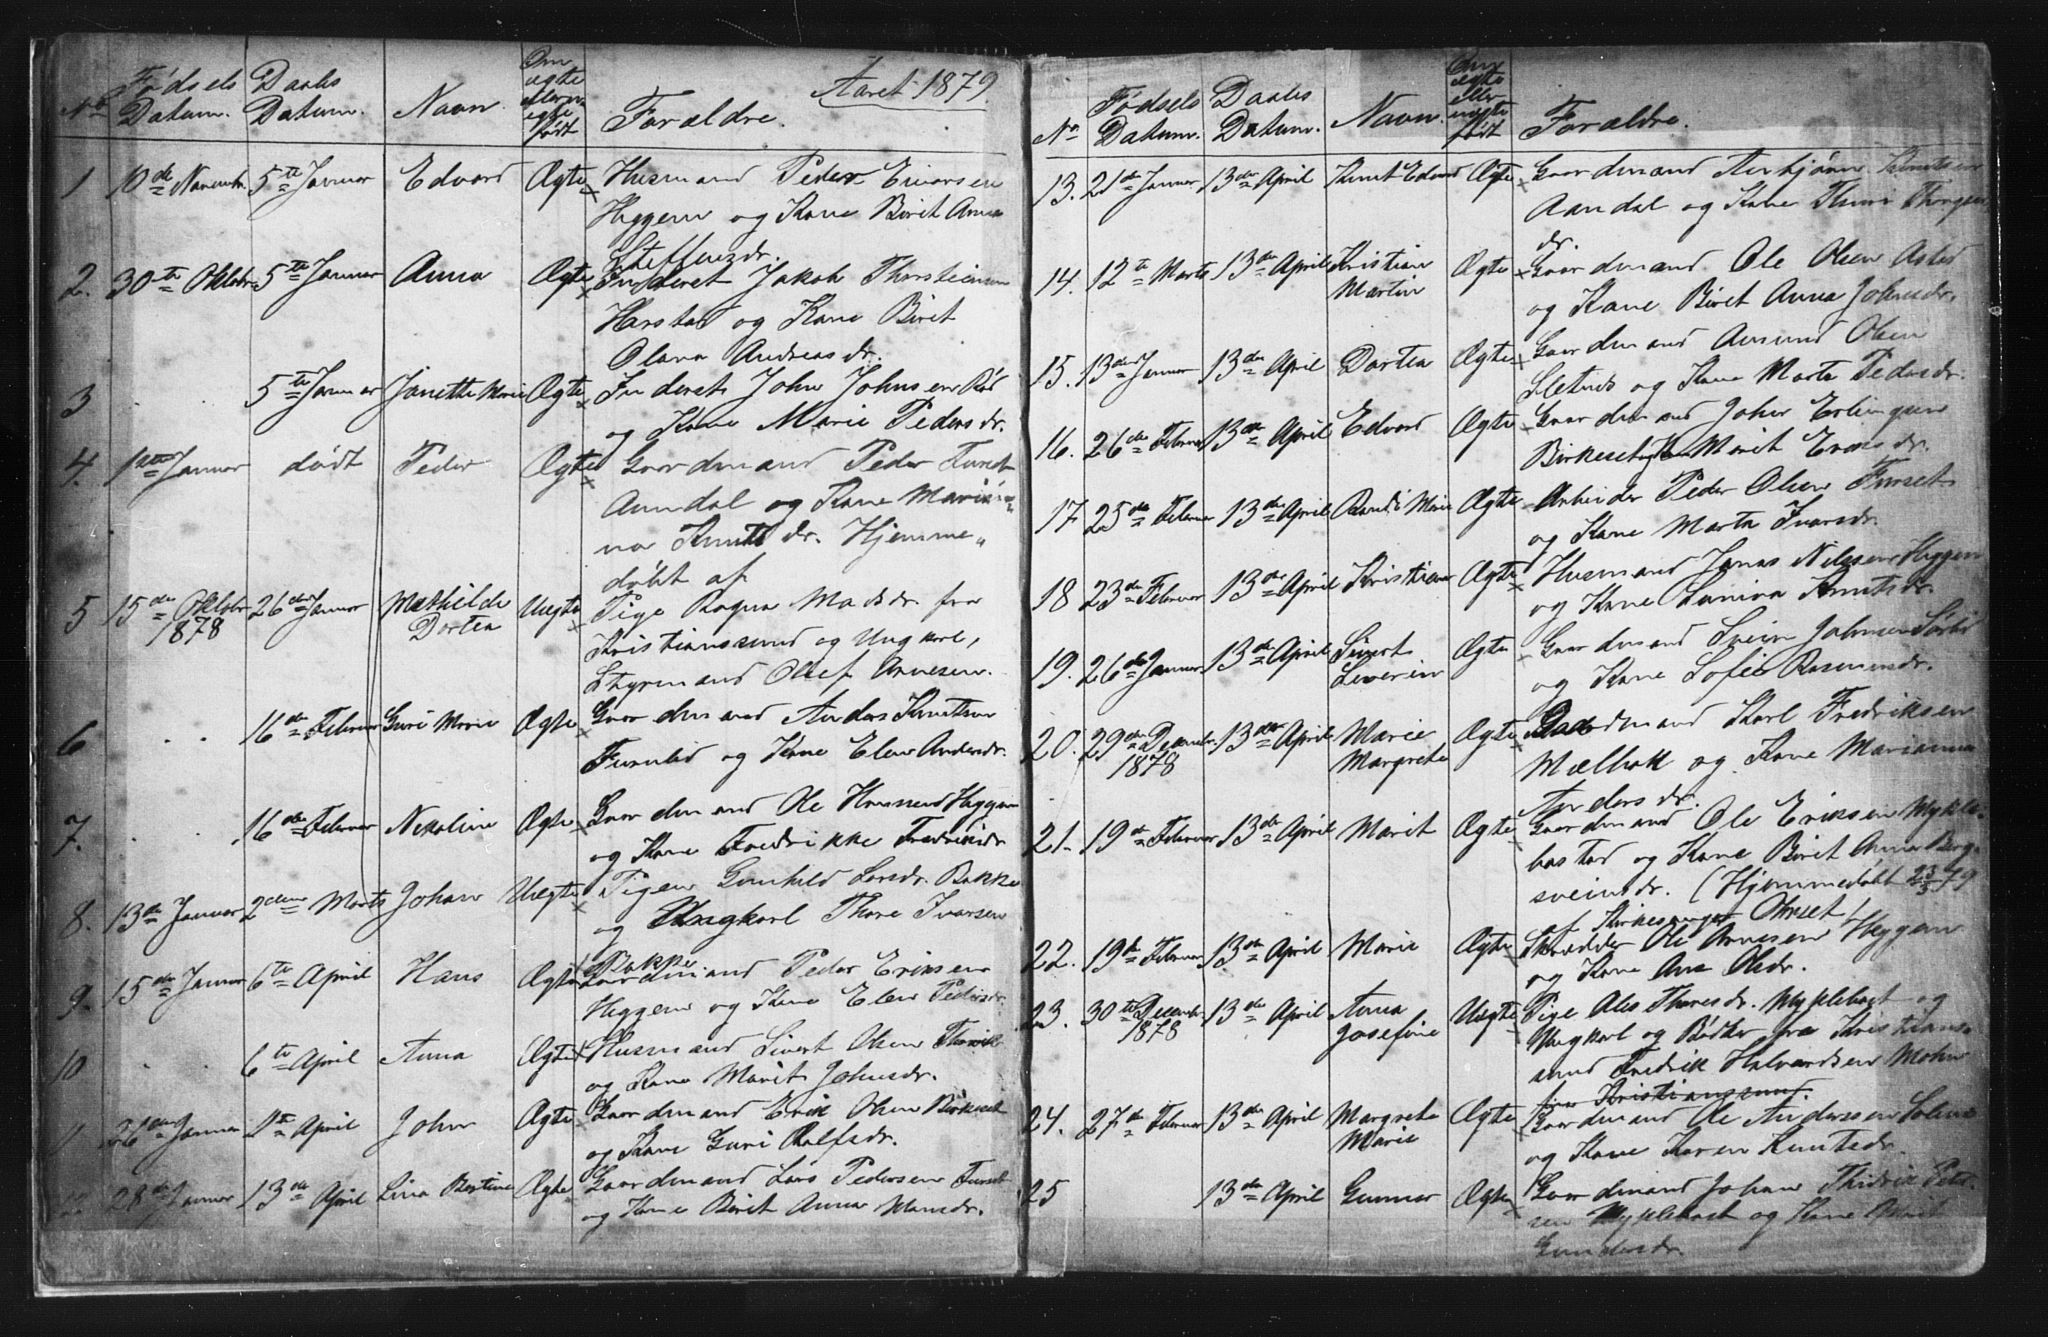 Aaret 1879
No Fødsels Datum. Daabs Datum. Navn Om ægte eller uægte født Forældre.
1 10de Novembr. 5te Januar Edvard Ægte Husmand Peder Einarsen
Heggem og Kone Birit Anna
Steffensdr.
2. 30te Oktobr. 5te Januar Anna Ægte Inderst Jakob Thorsteinsen
Harstad og Kone Birit
Olava Andreasdr.
3 5te Januar Janette Marie Ægte Inderst John Johnsen Rød
og Kone Marie Pedersdr.
4. 1ste Januar dødt Peder Ægte Gaardmand Peder Furset
Aandal og Kone Marin
na Knutsdr. Hjemme„
døbt af
5 15de Oktobr 1878 26de Januar Mathilde Dortea Uægte Pige Ragna Madsdr. fra
Kristianssund og Ungkarl,
Styrmand Olaf Arnesen.
6 16de Februar Guri Marie Ægte Gaardmand Anders Knutsen
Furulid og Kone Elen Andersdr.
7. 16de Februar Nikoline Ægte Gaardmand Ole Hansen Heggem
og Kone Fredrikke Fredriksdr
8. 13de Januar 2den Marts Johan Uægte Pigen Gunhild Larsdr. Bakke
og Ungkarl Thore Ivarsen
Bakke
9. 15de Januar 6te April Hans Ægte Gaardmand Peder Eriksen
Heggem og Kone Elen Pedersdr.
10 6te April Anna Ægte Husmand Sivert Olsen
og Kone Marit Johnsdr.
26de Januar April John Ægte Gaardmand Erik Olsen Birkeset
og Kone Guri Rolfsdr.
28de Januar 13de April Lina Bertine Ægte Gaardmand Lars Pedersen Furset
og Kone Birit Anna Hansdr.
No Fødsels Datum. Daabs Datum. Navn. Om ægte eller uægte født Forældre.
13. 21de Januar 13de April Knut Edvard Ægte Gaardmand Arnbjørn Knutsen
Aandal og Kone
dr.
14. 12te Marts 13de April Kristian Martin Ægte Gaardmand Ole Olsen
og Kone Birit Anna Johnsdr.
15. 13de Januar 13de April Dortea Ægte Gaardmand Amund Olsen
og Kone Marta Pedersdr.
16. 26de Februar 13de April Edvard Ægte Gaardmand John Erlingsen
Birkeset og Marit Eriksdr.
17 25de Februar 13de April Randi Marie Ægte Arbeider Peder Olsen Furset
og Kone Marta Ivarsdr.
18 23de Februar 13de April Kristian Ægte Husmand Jonas Nilssen Heggem
og Kone Lavina Knutsdr.
19. 26de Januar 13de April Sivert Severin Ægte Gaardmand Svein Johnsen Sørlid
og Kone Sofie Rasmusdr.
20. 29de Decembr. 1878 13de April Marie Margrete Ægte Gaardmand Karl Fredriksen
Mælbak og Kone Marianna
Andersdr.
21. 19de Februar 13de April Marit Ægte Gaardmand Ole Eriksen Mykle-
bostad og Kone Birit Anna Berg-
sveinsdr. (Hjemmedøbt 23/3 79
af Kirkesanger Ohrset)
22. 19de Februar 13de April Marie Ægte Skrædder Ole Arnesen Heggem
og Kone Ane Olsdr.
23. 30te Decembr. 1878 13de April Anna Josefine Uægte Pige Ales Thoresdr. Myklebost og
Ungkarl og Bødker fra Kristians-
sund Fredrik Halvardsen Mohn
fra Kristianssund.
24. 27de Februar 13de April Margrete Marie Ægte Gaardmand Ole Anderssen Solem
og Kone Karen Knutsdr.
25 13de April Gunnar Ægte Gaardmand Johan Thidrik Peter
sen Myklebost og Kone
Gundersdr.